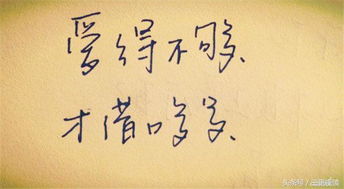 爱得不够、
才借口多多、
头条号/